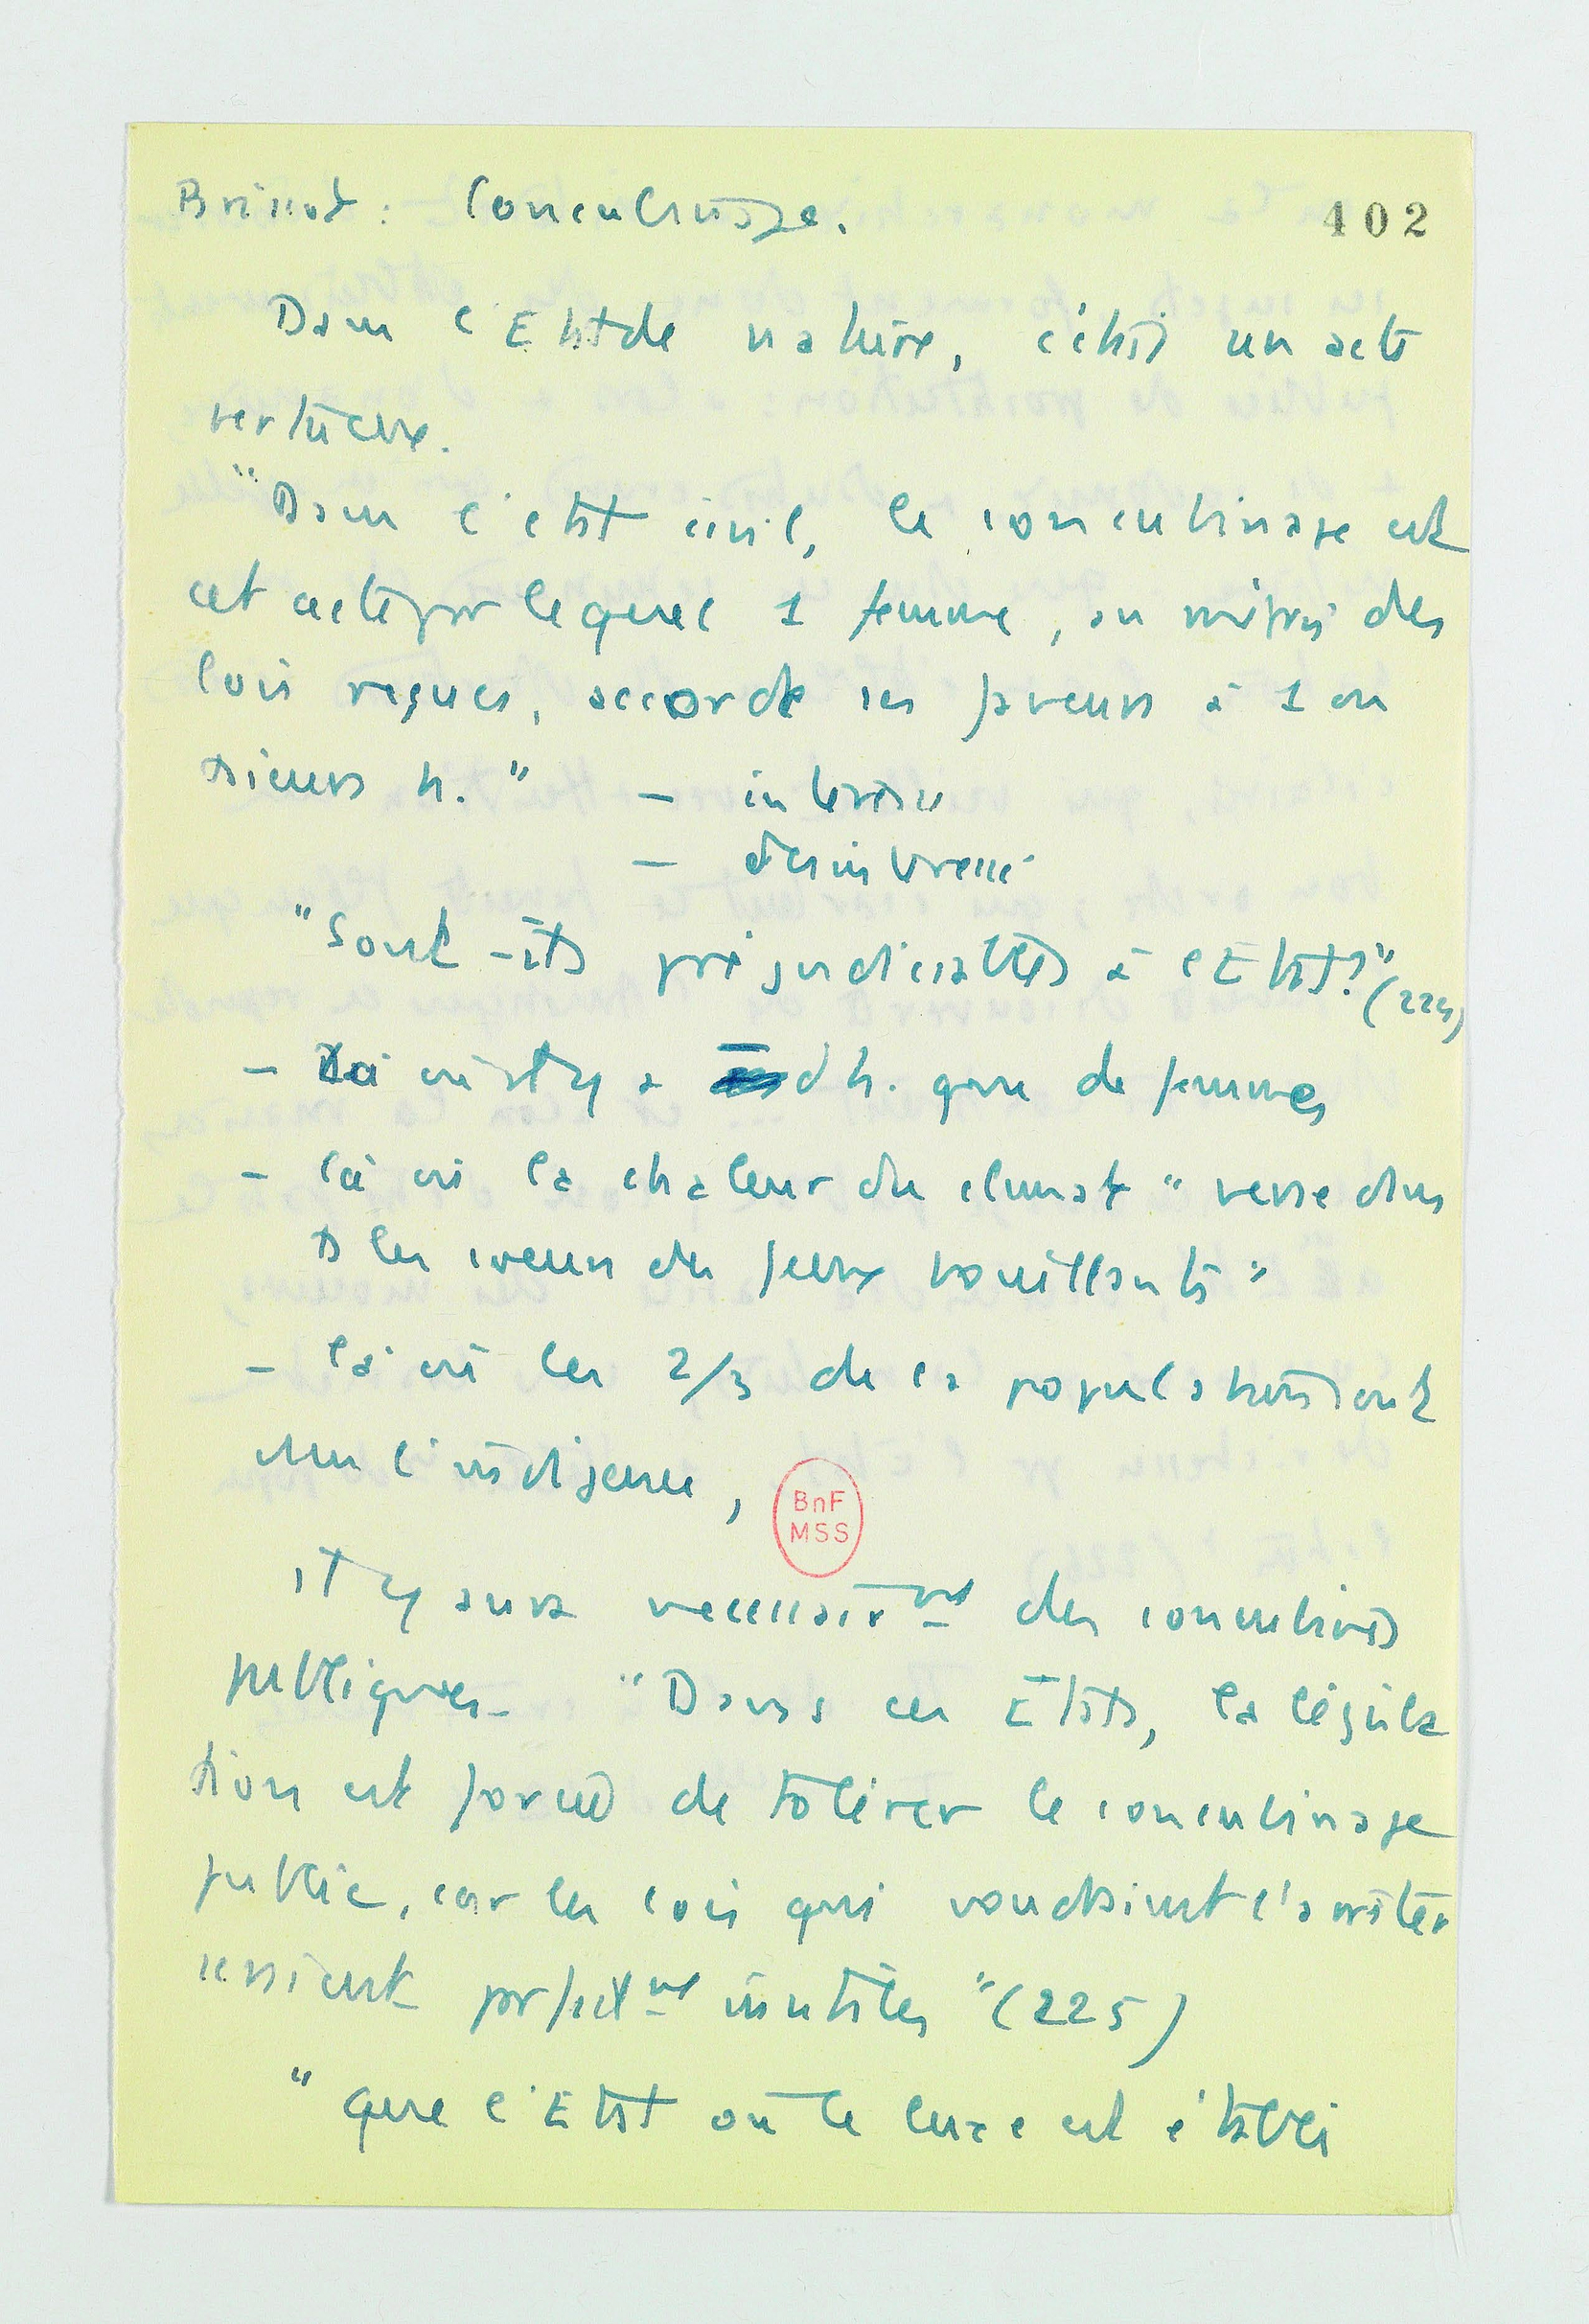 Brissot : Concubinage.
402
Dans l'Etat de nature, c'était un acte
vertueux.
"Dans l'état civil, le concubinage est
cet acte par lequel 1 femme, au mépris des
lois reçues, accorde ses faveurs à 1 ou
sieurs h." – intéressé
– désintéressé
"Sont-ils préjudiciables à l'Etat?" (224)
– Là où il y a d'h. que de femmes
– là où la chaleur du climat "verse dans
les coeurs des feux bouillants"
– là où les 2/3 de la population sont
dans l'indigence,
il y aura nécessairemt des concubines
publiques. "Dans ces Etats, la législa
tion est forcée de tolérer le concubinage
public, car les lois qui voudraient l'arrêter
seraient parfaitemt inutiles" (225)
"que l'Etat où le luxe est établi
BnF
MSS